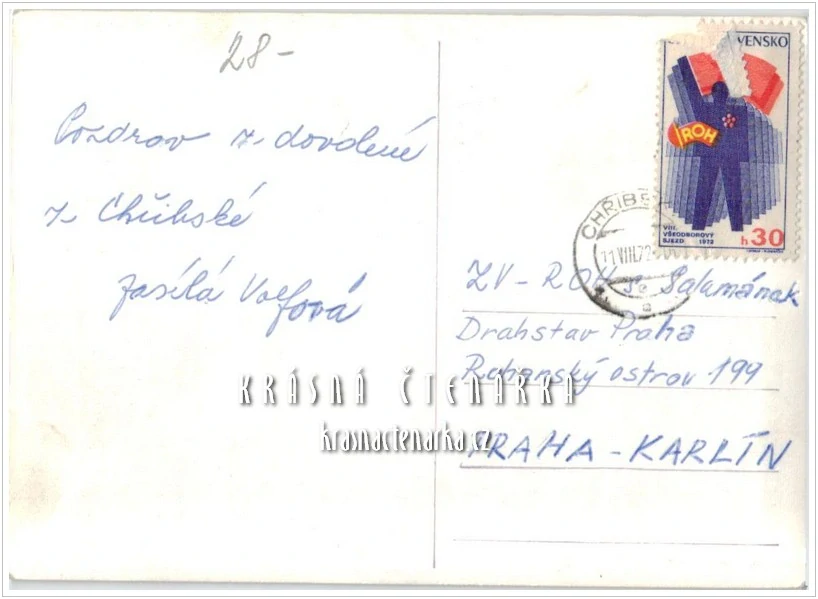 28-
Pozdrav z dovolené
z Chřibské
zasílá Volfová
VENSKO
ROH
VIII.
VŠEODBOROVÝ
SJEZD 1972
h30
CHŘIBS
11.VIII.72
a
ZV - ROH s. Salamának
Drahstav Praha
Rohanský ostrov 199
PRAHA - KARLÍN
KRÁSNÁ ČTENÁRKA
krasnactenarka.cz